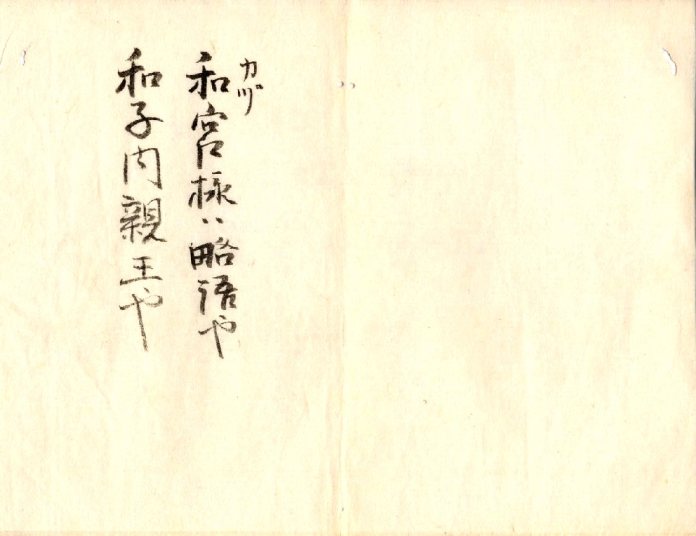 和宮様ハ略語や
カヅ
和子内親王や